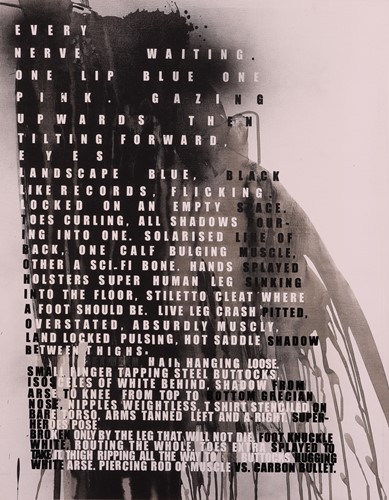 EVERY
NERVE WAITING.
ONE LIP BLUE ONE
PINK. GAZING
UPWARDS THEN
TILTING FORWARD,
EYES
LANDSCAPE BLUE, BLACK
LIKE RECORDS, FLICKING,
LOCKED ON AN EMPTY SPACE.
TOES CURLING, ALL SHADOWS POUR-
ING INTO ONE. SOLARISED LINE OF
BACK, ONE CALF BULGING MUSCLE,
OTHER A SCI.FI BONE. HANDS SPLAYED
HOLSTERS SUPER HUMAN LEG SINKING
INTO THE FLOOR, STILETTO CLEAT WHERE
A FOOT SHOULD BE. LIVE LEG CRASH PITTED,
OVERSTATED, ABSURDLY MUSCLY,
LAND LOCKED PULSING, HOT SADDLE SHADOW
BETWEEN THIGHS.
HAIR HANGING LOOSE.
SMALL FINGER TAPPING STEEL BUTTOCKS,
ISOSCELES OF WHITE BEHIND, SHADOW FROM
ARSE TO KNEE FROM TOP TO BOTTOM GRECIAN
NOSE, NIPPLES WEIGHTLESS, T SHIRT STENCILED ON
BARE TORSO, ARMS TANNED LEFT AND A RIGHT SUPER-
HEROES POSE
BROKEN ONLY BY THE LEG THAT WILL NOT DIE, FOOT KNUCKLE
WHITE, ROUTING THE WHOLE, TOES EXTRA SPLAYED TO
TAKE IT THIGH RIPPING ALL THE WAY TO BUTTOCKS HUGGING
WHITE ARSE. PIERCING ROD OF MUSCLE VS. CARBON BULLET.